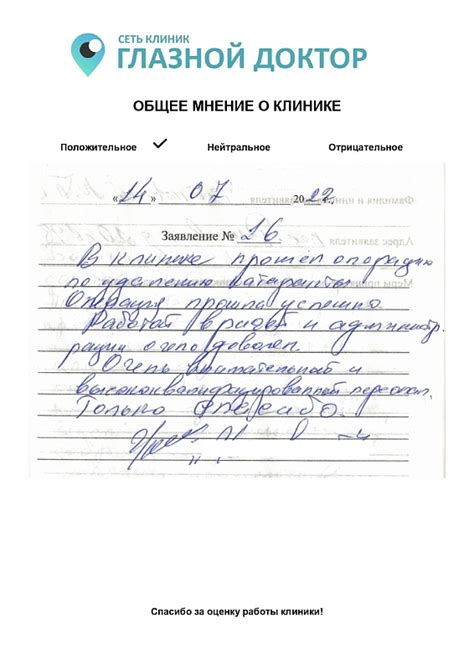 СЕТЬ КЛИНИК
ГЛАЗНОЙ ДОКТОР
ОБЩЕЕ МНЕНИЕ О КЛИНИКЕ
Положительное ✓ Нейтральное Отрицательное
«14» 07 2022 г.
Заявление № 26
В клинике прошёл операцию
по удалению катаракты.
Операция прошла успешно.
Работой врачей и администр
рации очень доволен.
Очень внимательный и
высококвалифицированный персонал.
Только спасибо.
Спасибо за оценку работы клиники!